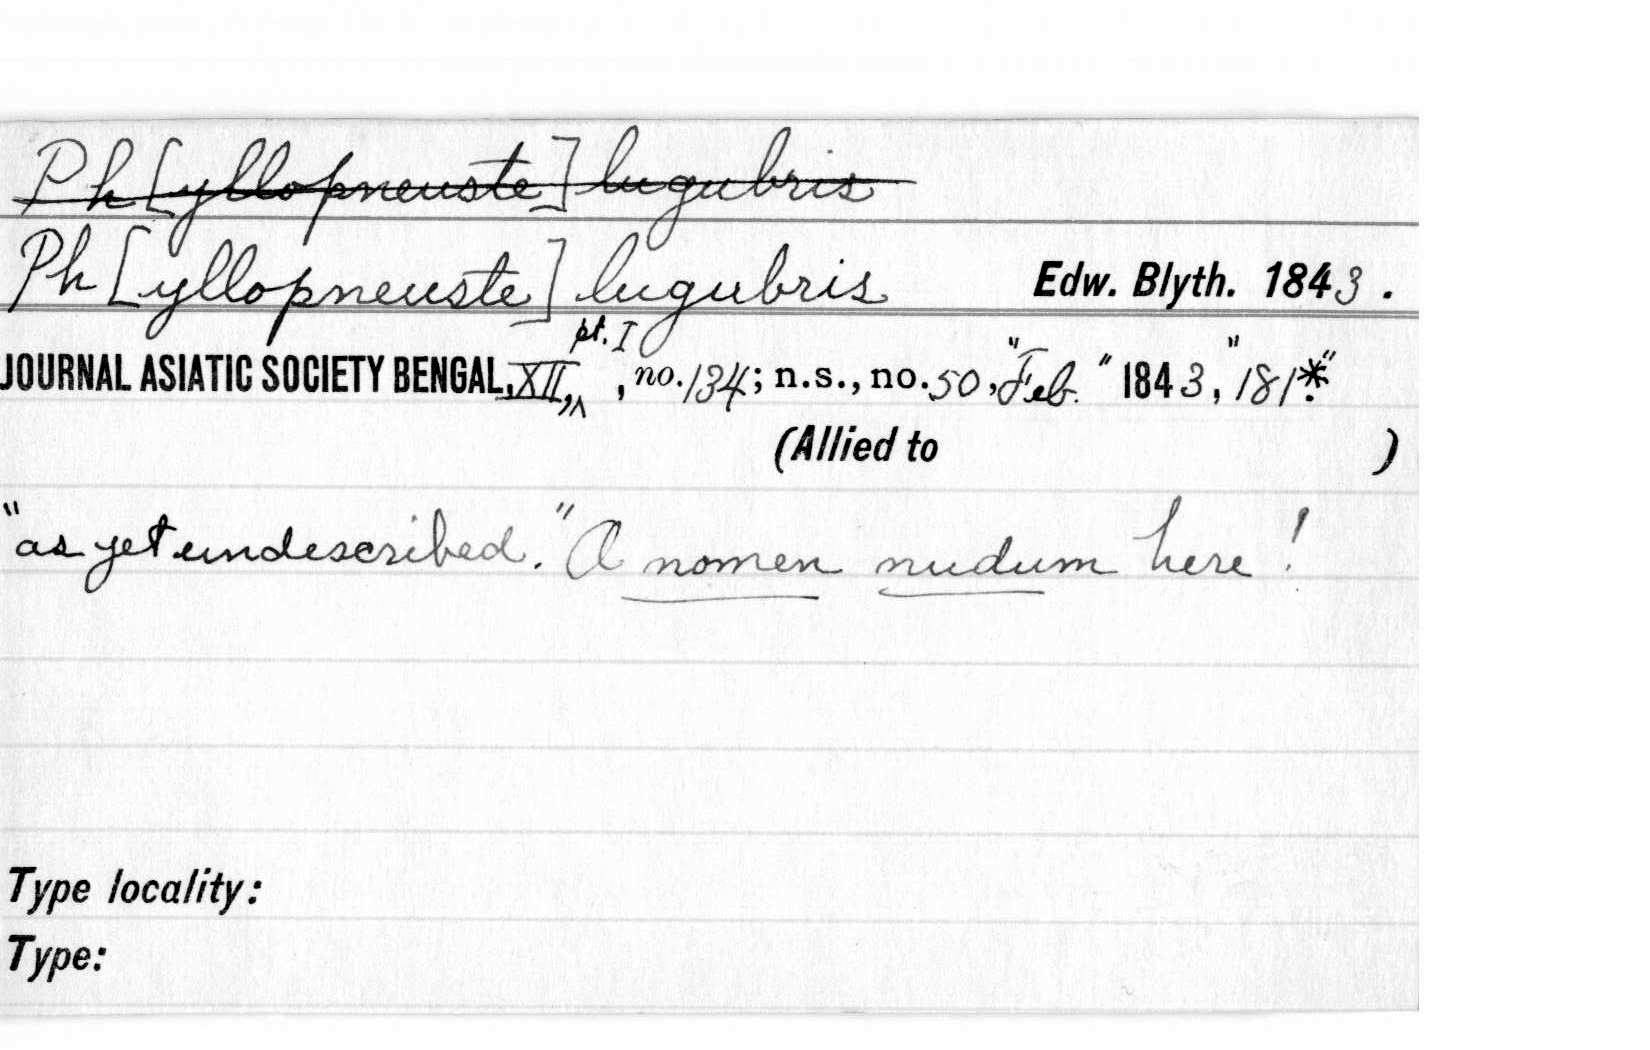 Ph[yllopneuste] lugubris
Ph[yllopneuste] lugubris Edw. Blyth. 1843.
JOURNAL ASIATIC SOCIETY BENGAL, XII, pt. I, no. 134; n.s., no. 50, "Feb." 1843, "181*."
(Allied to )
"as yet undescribed." A nomen nudum here!
Type locality:
Type: